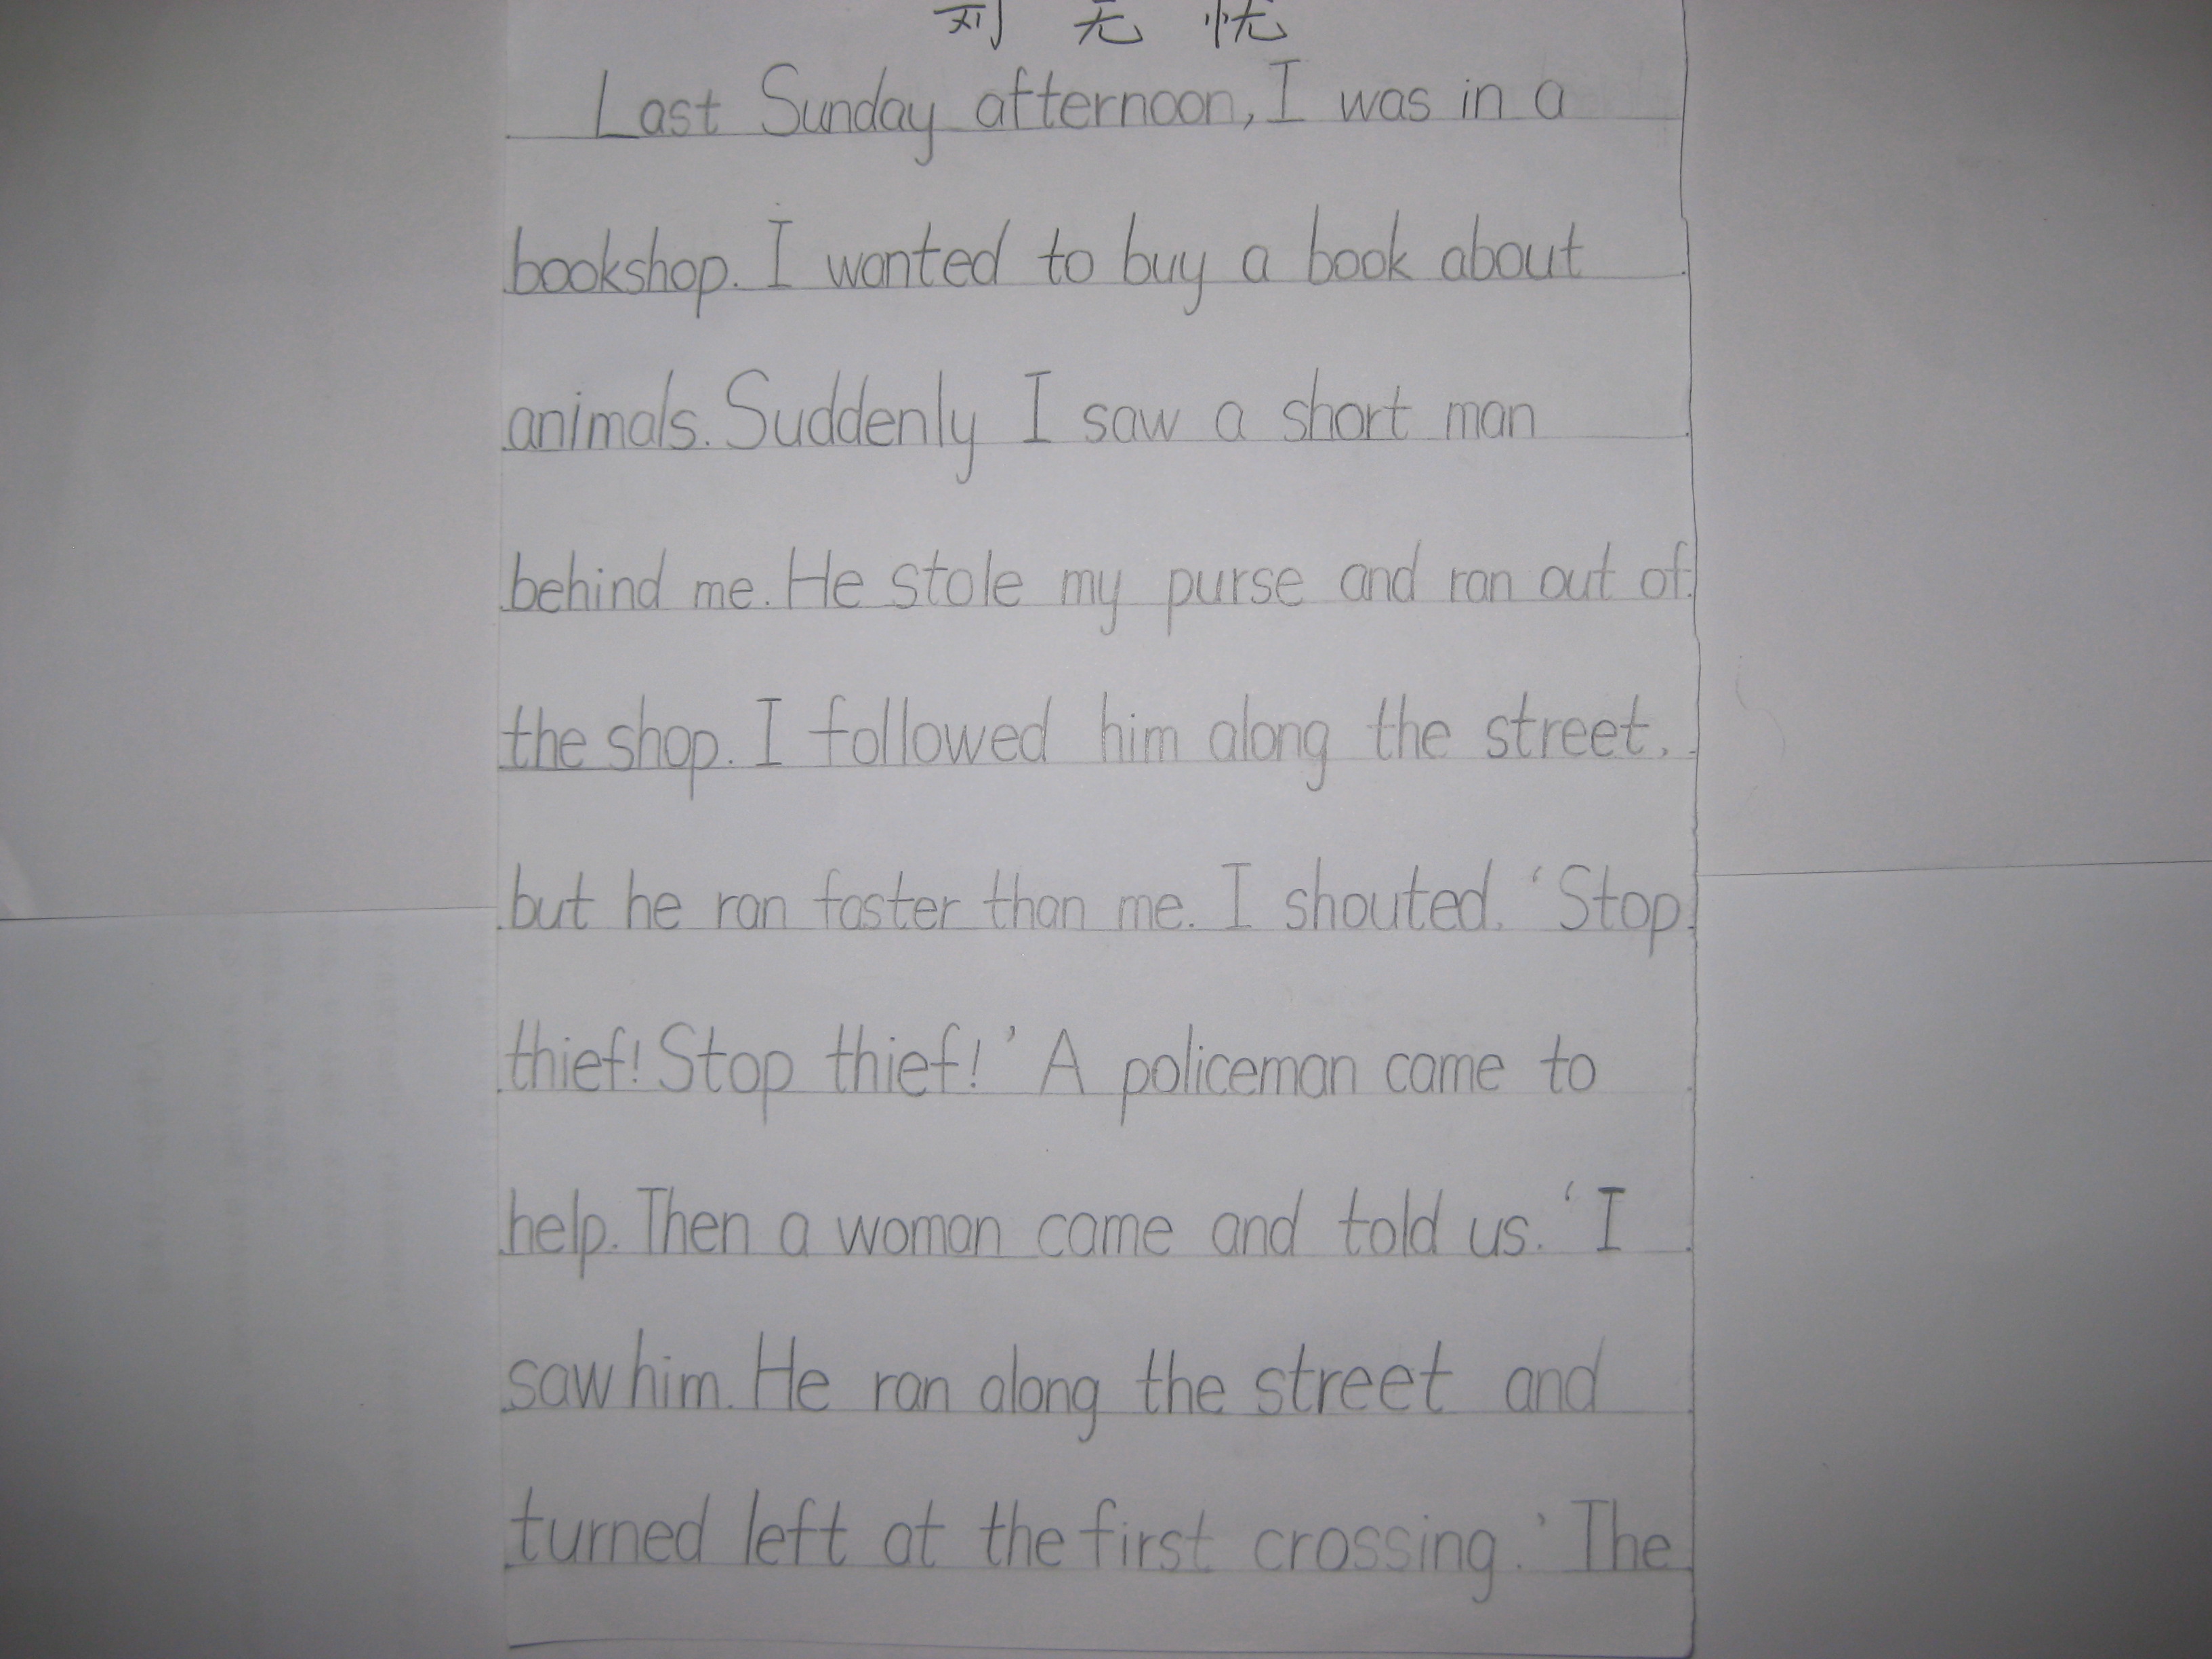 刘 无 忧
Last Sunday afternoon, I was in a
bookshop. I wanted to buy a book about
animals. Suddenly I saw a short man
behind me. He stole my purse and ran out of
the shop. I followed him along the street.
but he ran faster than me. I shouted. ‘Stop
thief! Stop thief!’ A policeman came to
help. Then a woman came and told us. ‘I
saw him. He ran along the street and
turned left at the first crossing.’ The